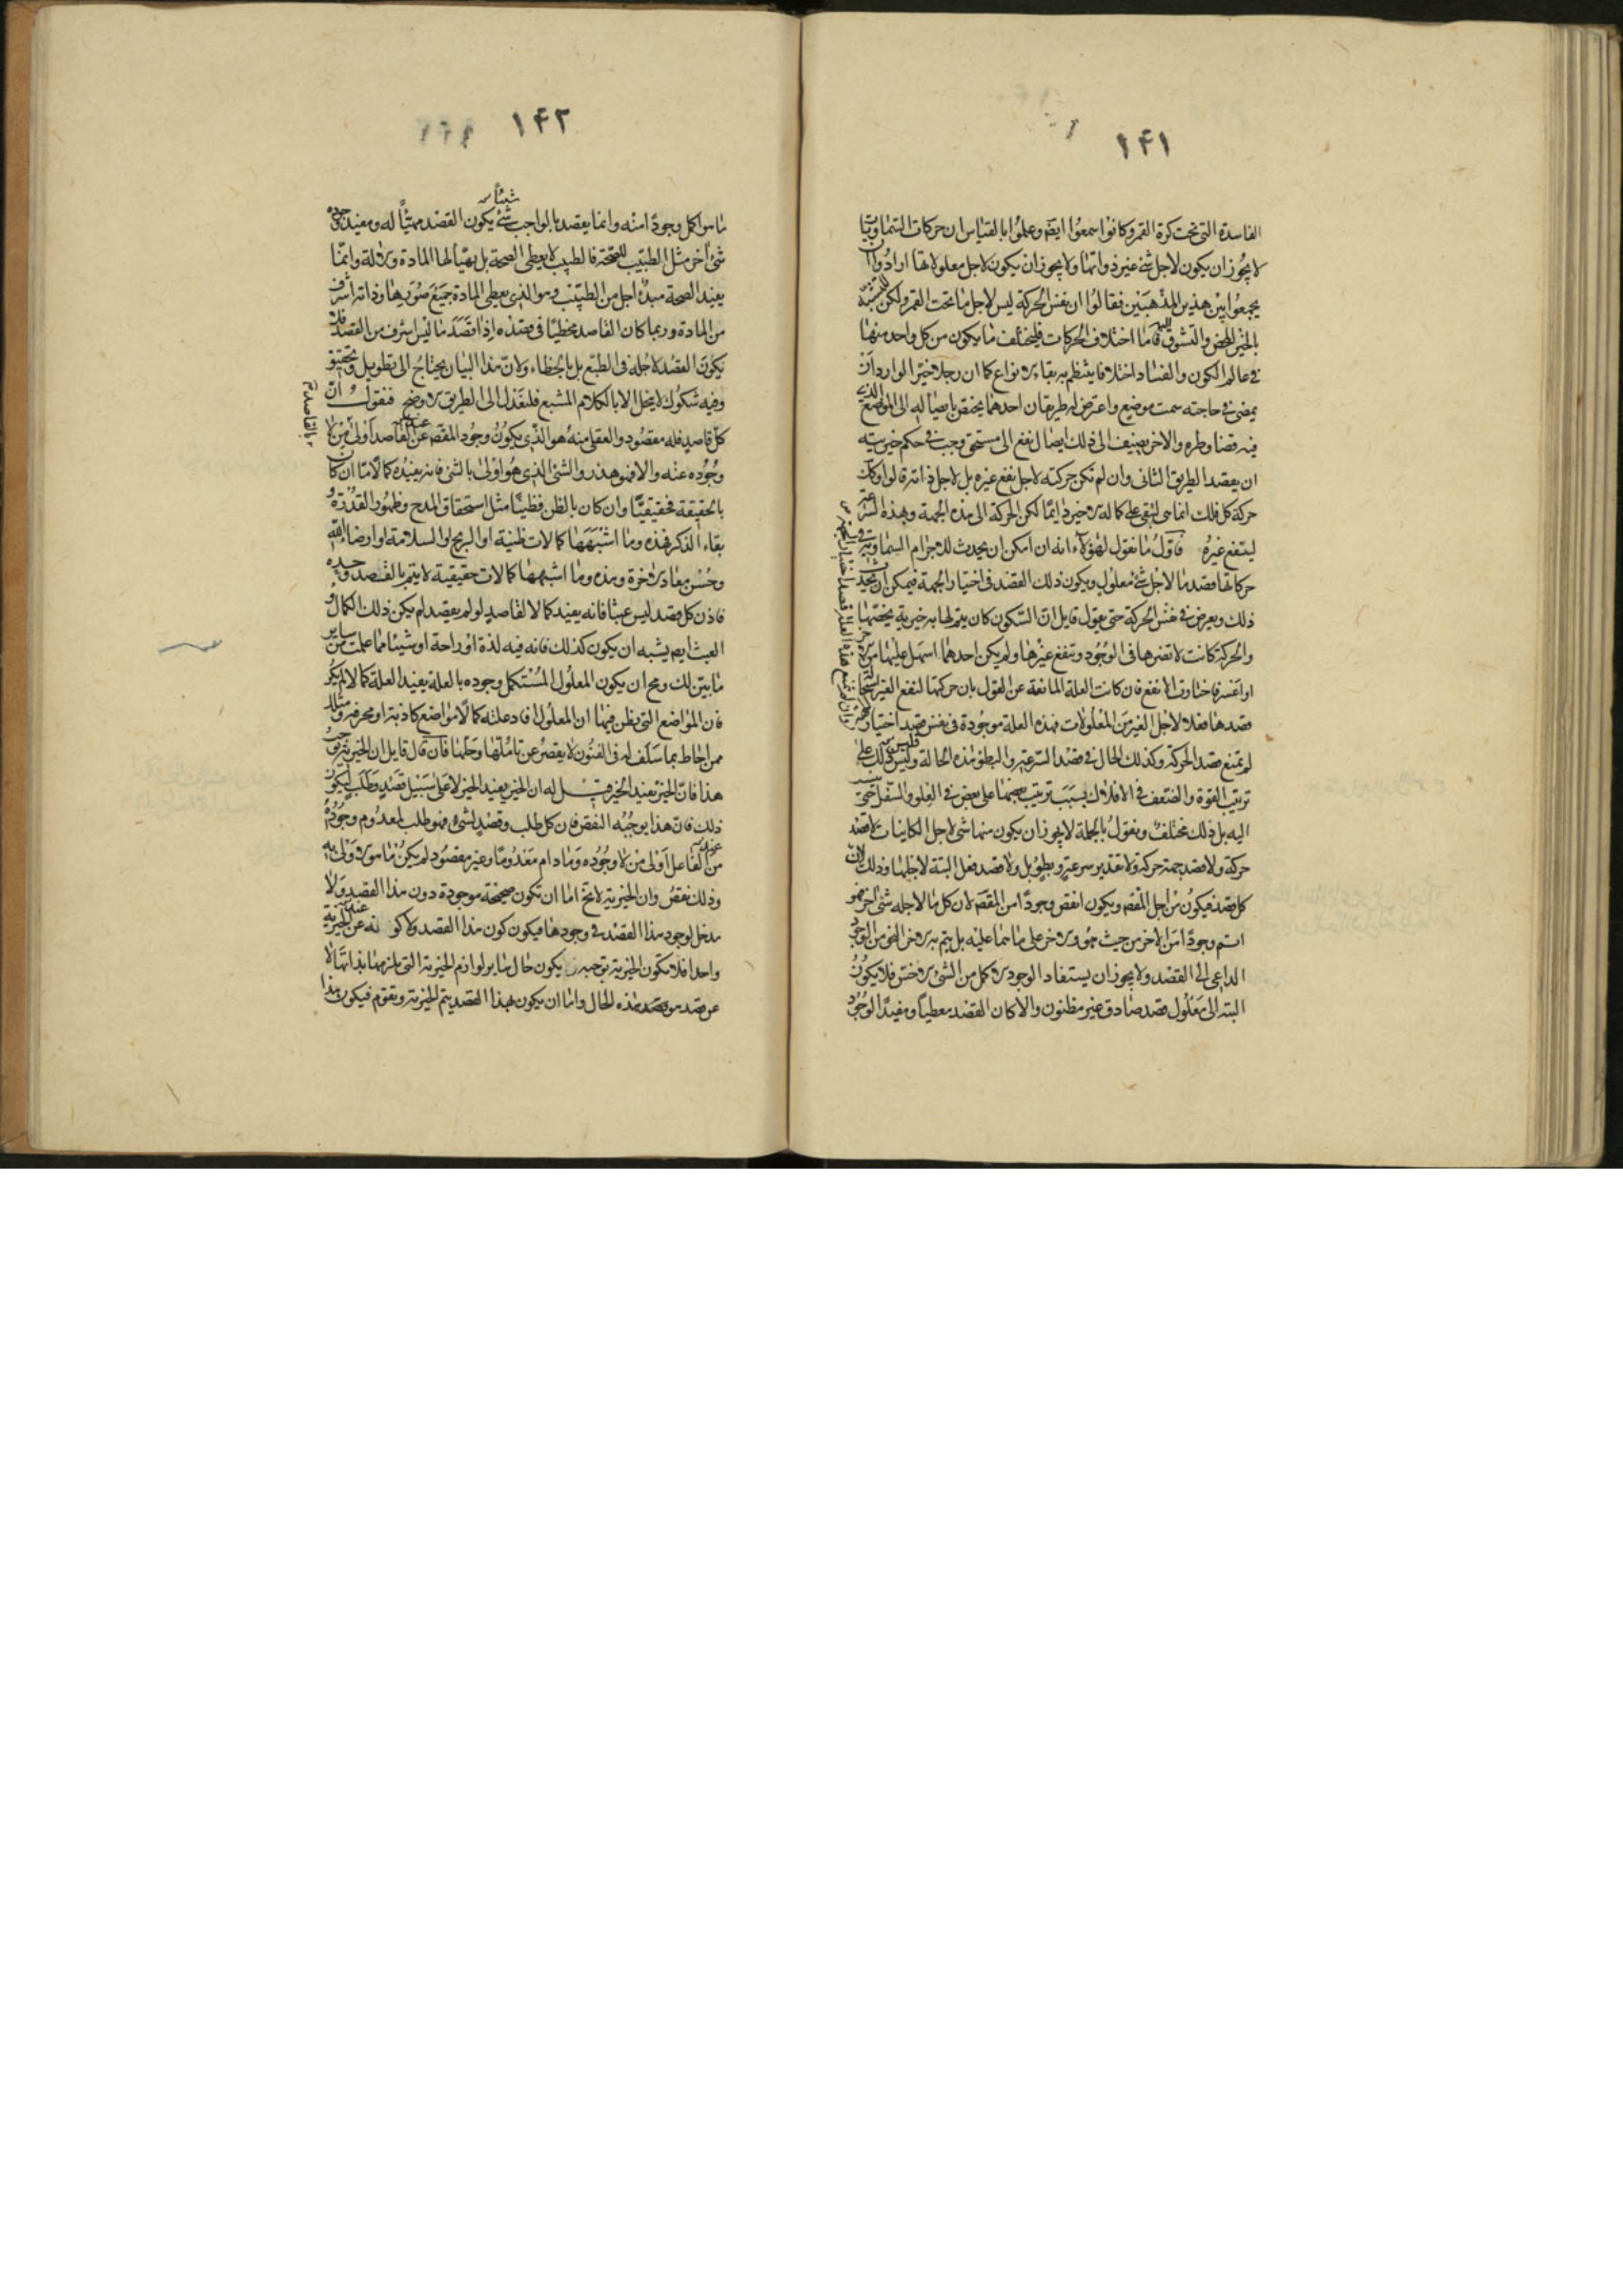 ١٤١
الفاسدة التى تحت كرة القمر وكانوا سمعوا ايضا وعلموا بالقياس ان حركات السماويات
لا يجوز ان يكون لاجل شئ غير ذواتها ولا يجوز ان يكون لاجل معلولاتها ارادوا ان
يجمعوا بين هذين المذهبين فقالوا ان نفس الحركة ليس لاجل ما تحت القمر ولكن للتشبه
بالخير المحض والتشوق اليه فاما اختلاف الحركات فليختلف ما يكون من كل واحد منها
فى عالم الكون والفساد اختلافا ينتظم به بقاء الانواع كما ان رجلا خيرا لو اراد ان
يمضى فى حاجته سمت موضع واعترض له طريقان احدهما يختص بايصاله الى الموضع الذى
فيه قضا وطره والاخر يضيف الى ذلك ايصال نفع الى مستحق وجب فى حكم خيريته
ان يقصد الطريق الثانى وان لم تكن حركته لاجل نفع غيره بل لاجل ذاته قالوا وكك
حركة كل فلك انما هى لتبقى على كماله الاخير دايما لكن الحركة الى هذه الجهة وبهذه السرعة
لينتفع غيره فاول ما نقول لهؤلاء انه ان امكن ان يحدث للاجرام السماوية فى
حركاتها قصد ما لاجل شئ معلول ويكون ذلك القصد فى اختيار الجهة فيمكن ان يحدث
ذلك ويعرض فى نفس الحركة حتى يقول قايل ان السكون كان يتم لها به خيرية يخصها
والحركة كانت لا تضرها فى الوجود وتنفع غيرها ولم يكن احدهما اسهل عليها من الاخر
او اعسر فاختارت الانفع فان كانت العلة المانعة عن القول بان حركتها لنفع الغير استحالة
قصدها فعلا لاجل الغير من المعلولات فهذه العلة موجودة فى نفس قصد اختيار الجهة
لم تمنع قصد الحركة وكذلك الحال فى قصد السرعة والبطؤ هذه الحالة وليس ذلك على
ترتيب القوة والضعف فى الافلاك بسبب ترتيب بعضها على بعض فى العلو والسفل حتى
اليه بل ذلك مختلف ونقول بالجملة لا يجوز ان يكون منها شئ لاجل الكاينات لا قصد
حركة ولا قصد جهة حركة ولا تقدير سرعة وبطؤ بل ولا قصد فعل البتة لاجلها وذلك لان
كل قصد فيكون من اجل المقصود ويكون انقص وجودا من المقصود لان كل ما لاجله شئ اخر فهو
اتم وجودا من الاخر من حيث هو والاخر على ما هما عليه بل يتم به للاخر النحو من الوجود
الداعى الى القصد ولا يجوز ان يستفاد الوجود الاكمل من الشئ الاخس فلا يكون
البته الى معلول قصد صادق غير مظنون والا كان القصد معطيا ومفيدا لوجود
١٤٢
شيئا
ما هو اكمل وجودا منه وانما يقصد بالواجب شئ يكون القصد مهيئا له ومفيد وجوده
شئ اخر مثل الطبيب للصحة فالطبيب لا يعطى الصحة بل يهيأ لها المادة والالة وانما
يفيد الصحة مبدأ اجل من الطبيب وهو الذى يعطى المادة جميع صورها وذاته اشرف
من المادة وربما كان القاصد مخطيا فى قصده اذا قصد ما ليس اشرف من القصد فلا
يكون القصد لاجله فى الطبع بل بالخطاء ولان هذا البيان يحتاج الى تطويل وتحقيق
وفيه شكوك لا ينحل الا بالكلام المشبع فلنعدل الى الطريق الاوضح فنقول ان
كل قاصد فله مقصود والعقلى منه هو الذى يكون وجود المقصود عن القاصد اولى من لا
وجوده عنه والا فهو هذر والشئ الذى هو اولى بالشئ فانه يفيده كمالا ما ان كان
بالحقيقة فحقيقيا وان كان بالظن فظنيا مثل استحقاق المدح وظهور القدرة و
بقاء الذكر فهذه وما اشبهها كمالات ظنية او الربح او السلامة او ارضاء الله
وحسن معاد الاخرة وهذه وما اشبهها كمالات حقيقية لا يتم بالقصد وحده
فاذن كل قصد ليس عبثا فانه يفيد كمالا لقاصد لو لم يقصد لم يكن ذلك الكمال و
العبث ايضا يشبه ان يكون كذلك فانه فيه لذة او راحة او شيئا مما علمت من ساير
ما بين لك ومح ان يكون المعلول المستكمل وجوده بالعلة يفيد العلة كمالا لم يكن
فان المواضع التى يظن فيها ان المعلول افاد علته كمالا مواضع كاذبة او محرفة ومثلك
ممن احاط بما سلف له فى الفنون لا يقصر عن تاملها وحلها فان قال قايل ان الخيرية توجب
هذا فان الخير يفيد الخير قيل له ان الخير يفيد الخير لا على سبيل قصد وطلب ليكون
ذلك فان هذا يوجبه النقص فان كل طلب وقصد لشئ فهو طلب لمعدوم وجوده
من الفاعل اولى من لا وجوده وما دام معدوما وغير مقصود لم يكن ما هو الاولى به
وذلك نقص وان الخيرية لا يخ اما ان تكون صحيحة موجودة دون هذا القصد ولا
مدخل لوجود هذا القصد فى وجودها فيكون كون هذا القصد ولا كونه عن الخيرية
واحدا فلا تكون الخيرية توجبه يكون حال ساير لوازم الخيرية التى يلزمها بذاتها لا
عن قصد هو قصد هذه الحال واما ان يكون بهذا القصد يتم الخيرية وتقوم فيكون هذا